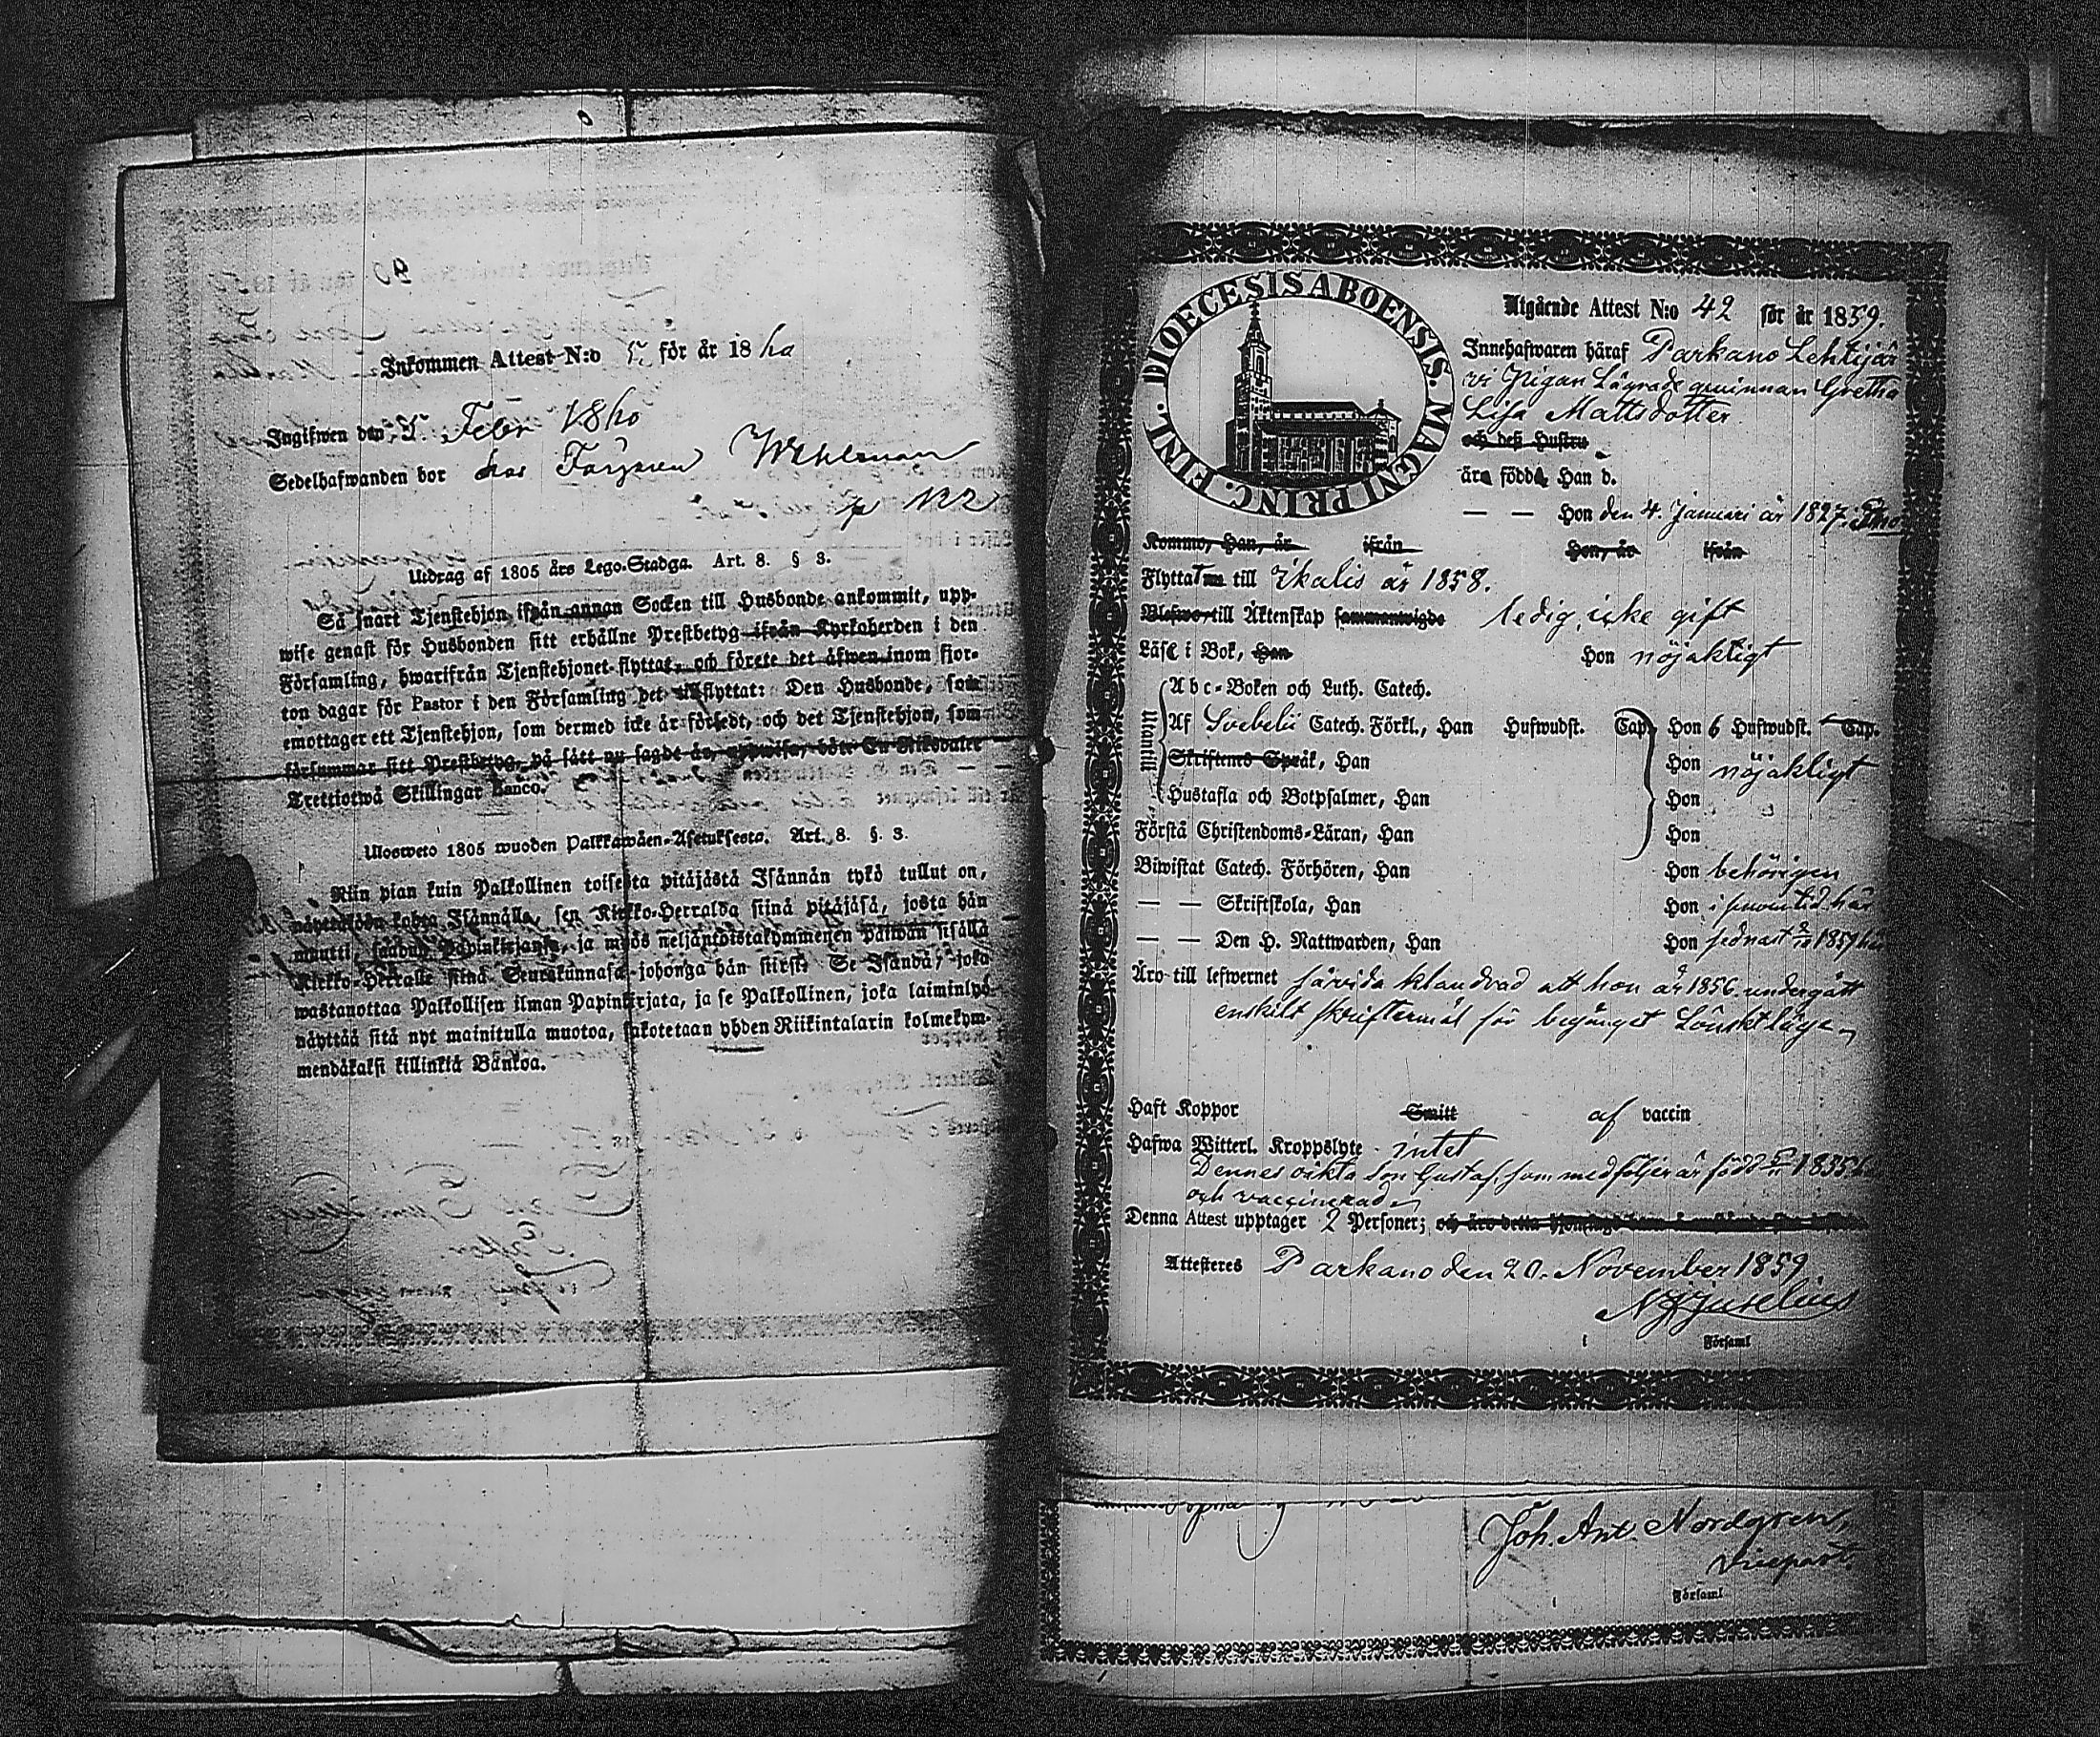 Inkommen Attest N:o 5. för år 1860
Ingifwen den 5. Febr 1860
Sedelhafwanden bor hos Färgaren Wahlman
p 122
Utdrag af 1805 års Lego-Stadga. Art. 8. § 3.
Så snart Tjenstehjon ifrån annan Socken till Husbonde ankommit, upp-
wise genast för Husbonden sitt erhållne Prestbetyg ifrån Kyrkoherden i den
Församling, hwarifrån Tjenstehjonet flyttat, och förete det äfwen inom fjor-
ton dagar för Pastor i den Församling det tillflyttat: Den Husbonde, som
emottager ett Tjenstehjon, som dermed icke är försedt, och det Tjenstehjon, som
försummar sitt Prestbetyg, på sätt nu sagdt är, uppwisa, böte En Riksdaler
Trettiotwå Skillingar Banco.
Ulosweto 1805 wuoden Palkkawäen-Asetuksesta. Art. 8. §. 3.
Niin pian kuin Palkollinen toisesta pitäjästä Isännän tykö tullut on,
näyttäköön kohta Isännälle, sen Kirkko-Herralda siinä pitäjäsä, josta hän
muutti, saadun Papinkirjansa, ja myös neljäntoistakymmenen päiwän sisällä
Kirkko-Herralle siinä Seurakunnasa johonga hän siirsi: Se Isändä, joka
wastanottaa Palkollisen ilman Papinkirjata, ja se Palkollinen, joka laiminlyö
näyttää sitä nyt mainitulla muotoa, sakotetaan yhden Riikintalarin kolmekym-
mendäkaksi killinkiä Bänkoa.
DIOECESIS ABOENSIS. MAGNI PRINC. FINL.
Utgående Attest N:o 42 för år 1859.
Innehafwaren häraf Parkano Lehtijär
vi Pigan Lägrade qvinnan Gretha
Lisa Mattsdotter
och dess Hustru
äro född Han d.
— — Hon den 4. Januari år 1827
Kommo, Han, år ifrån Hon, år ifrån
Flyttat till Ikalis år 1858.
Blefwo till Äktenskap sammanwigde ledig, icke gift
Läse i Bok, Han Hon nöjaktigt
Utantill
Abc-Boken och Luth. Catech.
Af Svebelii Catech. Förkl., Han Hufwudst. Cap. Hon 6 Hufwudst. Cap.
Skriftens Språk, Han Hon nöjaktigt
Hustafla och Botpsalmer, Han Hon
Förstå Christendoms-Läran, Han Hon
Biwistat Catech. Förhören, Han Hon behörigen
— — Skriftskola, Han Hon i sinom tid här
— — Den H. Nattwarden, Han Hon sednast 1859 här
Äro till lefwernet klandrad att hon år 1856 undergått
enskilt skriftermål för begånget Lönskläge
Haft Koppor Smitt af vaccin
Hafwa Witterl. Kroppslyte intet
Dennes oäkta son Gustaf, som medföljer är född
och vaccinerad
Denna Attest upptager 2 Personer;
Attesteres Parkano den 20. November 1859
Juselius
i Församl
Joh. Ant. Nordgren,
vicepast.
i Församl